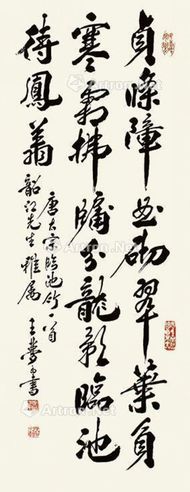 貞條障曲砌翠葉負
寒霜拂牖分龍影臨池
待鳳翥
唐太宗臨池竹一首
韶江先生雅屬
王夢白書